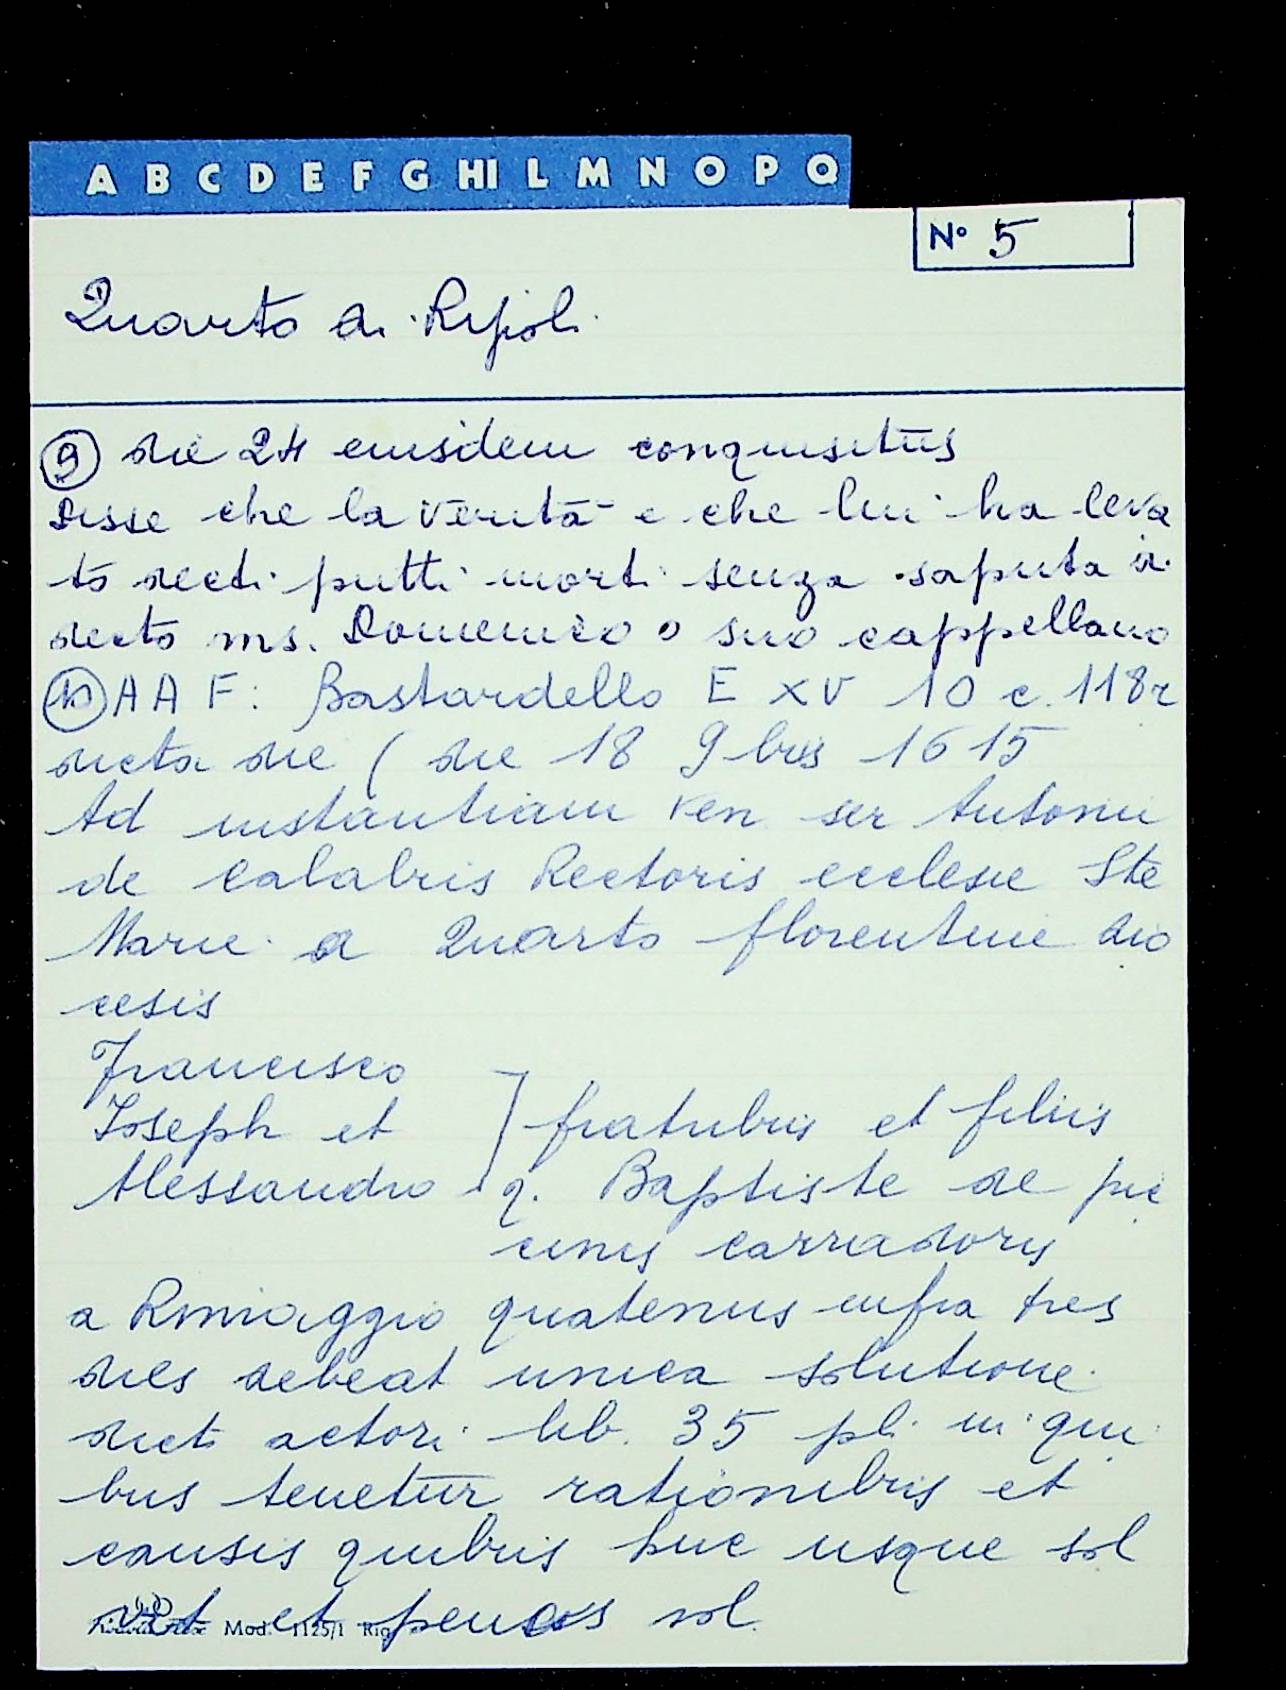 A B C D E F G HI L M N O P Q
N° 5
Quarto di Ripoli
9 die 24 eiusdem conquisitus
Disse che la verità e che lui ha leva
to decti putti morti senza saputa di
decto ms. Domenico o suo cappellano
10 A A F: Bastardello E XV 10 c. 118r
dicta die ( die 18 9bris 1615
Ad instantiam Ven ser Antonii
de Calabris Rectoris ecclesie Ste
Marie a Quarto florentine dio
cesis
Francisco
Joseph et
Alessandro
fratribus et filiis
q. Baptiste de pic
cinis carradoris
a Rimaggio quatenus infra tres
dies debeat unica solutione
dicti actori lib. 35 pli in qui
bus tenetur rationibus et
causis quibus huc usque sol
vit et sol
Mod. 1125/1 Rig.